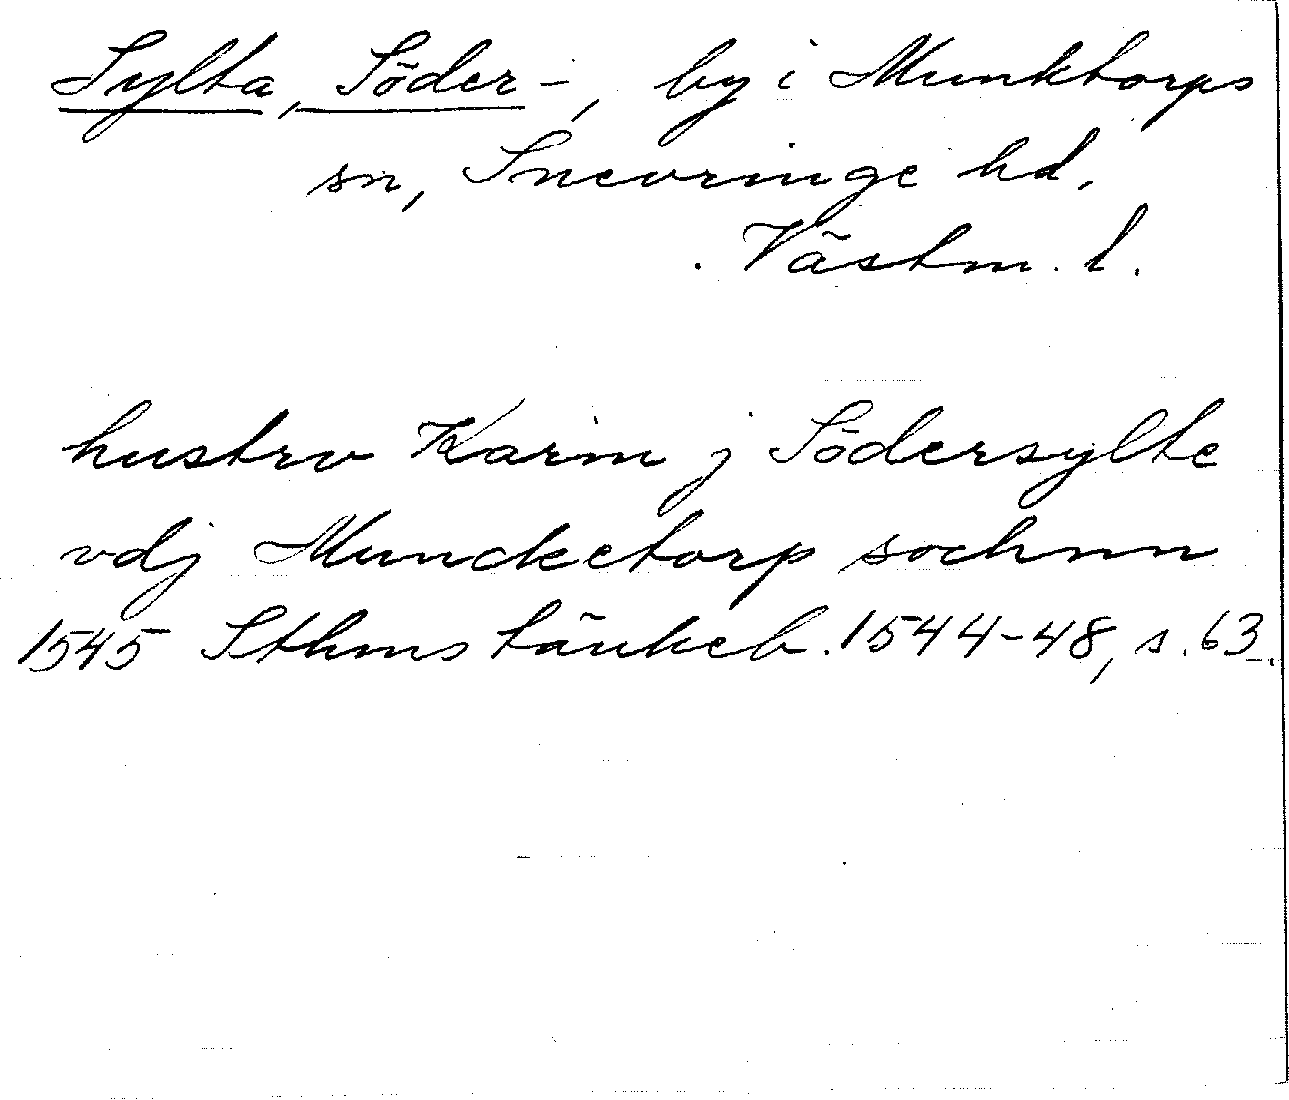 Sylta, Söder-, by i Munktorps
sn, Snevringe hd.
Västm. l.
hustrv Karin j Södersylte
vdj Muncketorp sochnn
1545 Sthms tänkeb. 1544-48, s. 63.